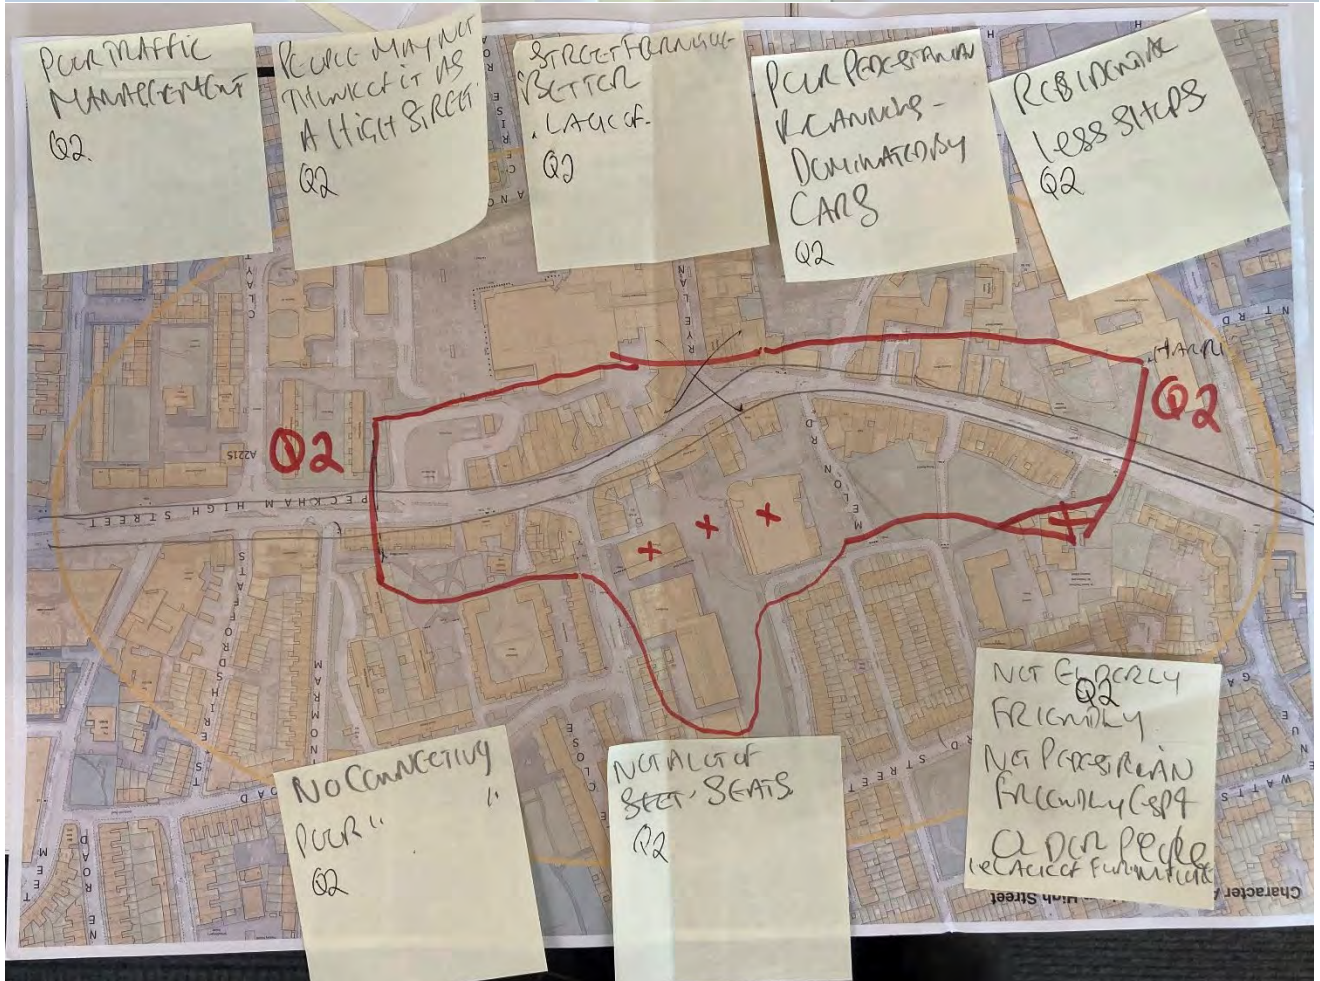 POOR TRAFFIC
MANAGEMENT
Q2.
PEOPLE MAY NOT
THINK OF IT AS
A HIGH STREET
Q2
STREET FURNITURE
BETTER
. LACK OF.
Q2
POOR PEDESTRIAN
PLANNING -
DOMINATED BY
CARS
Q2
RESIDENTIAL
LESS SHOPS
Q2
HARRI
Q2
Q2
A2215
PECKHAM HIGH STREET
CLAYT
RYE LAN
MELON RD
NT RD
STAFFORDSHIRE ST
MARMON
OAD
CLOSE
STREET
WATTS
NE ROAD
MET
NO CONNECTIVITY
POOR "
Q2
NOT A LOT OF
SEATS
Q2
NOT ELDERLY
Q2
FRIENDLY
NOT PEDESTRIAN
FRIENDLY ESP 4
OLDER PEOPLE
ie LACK OF FURNITURE
Character A
High Street